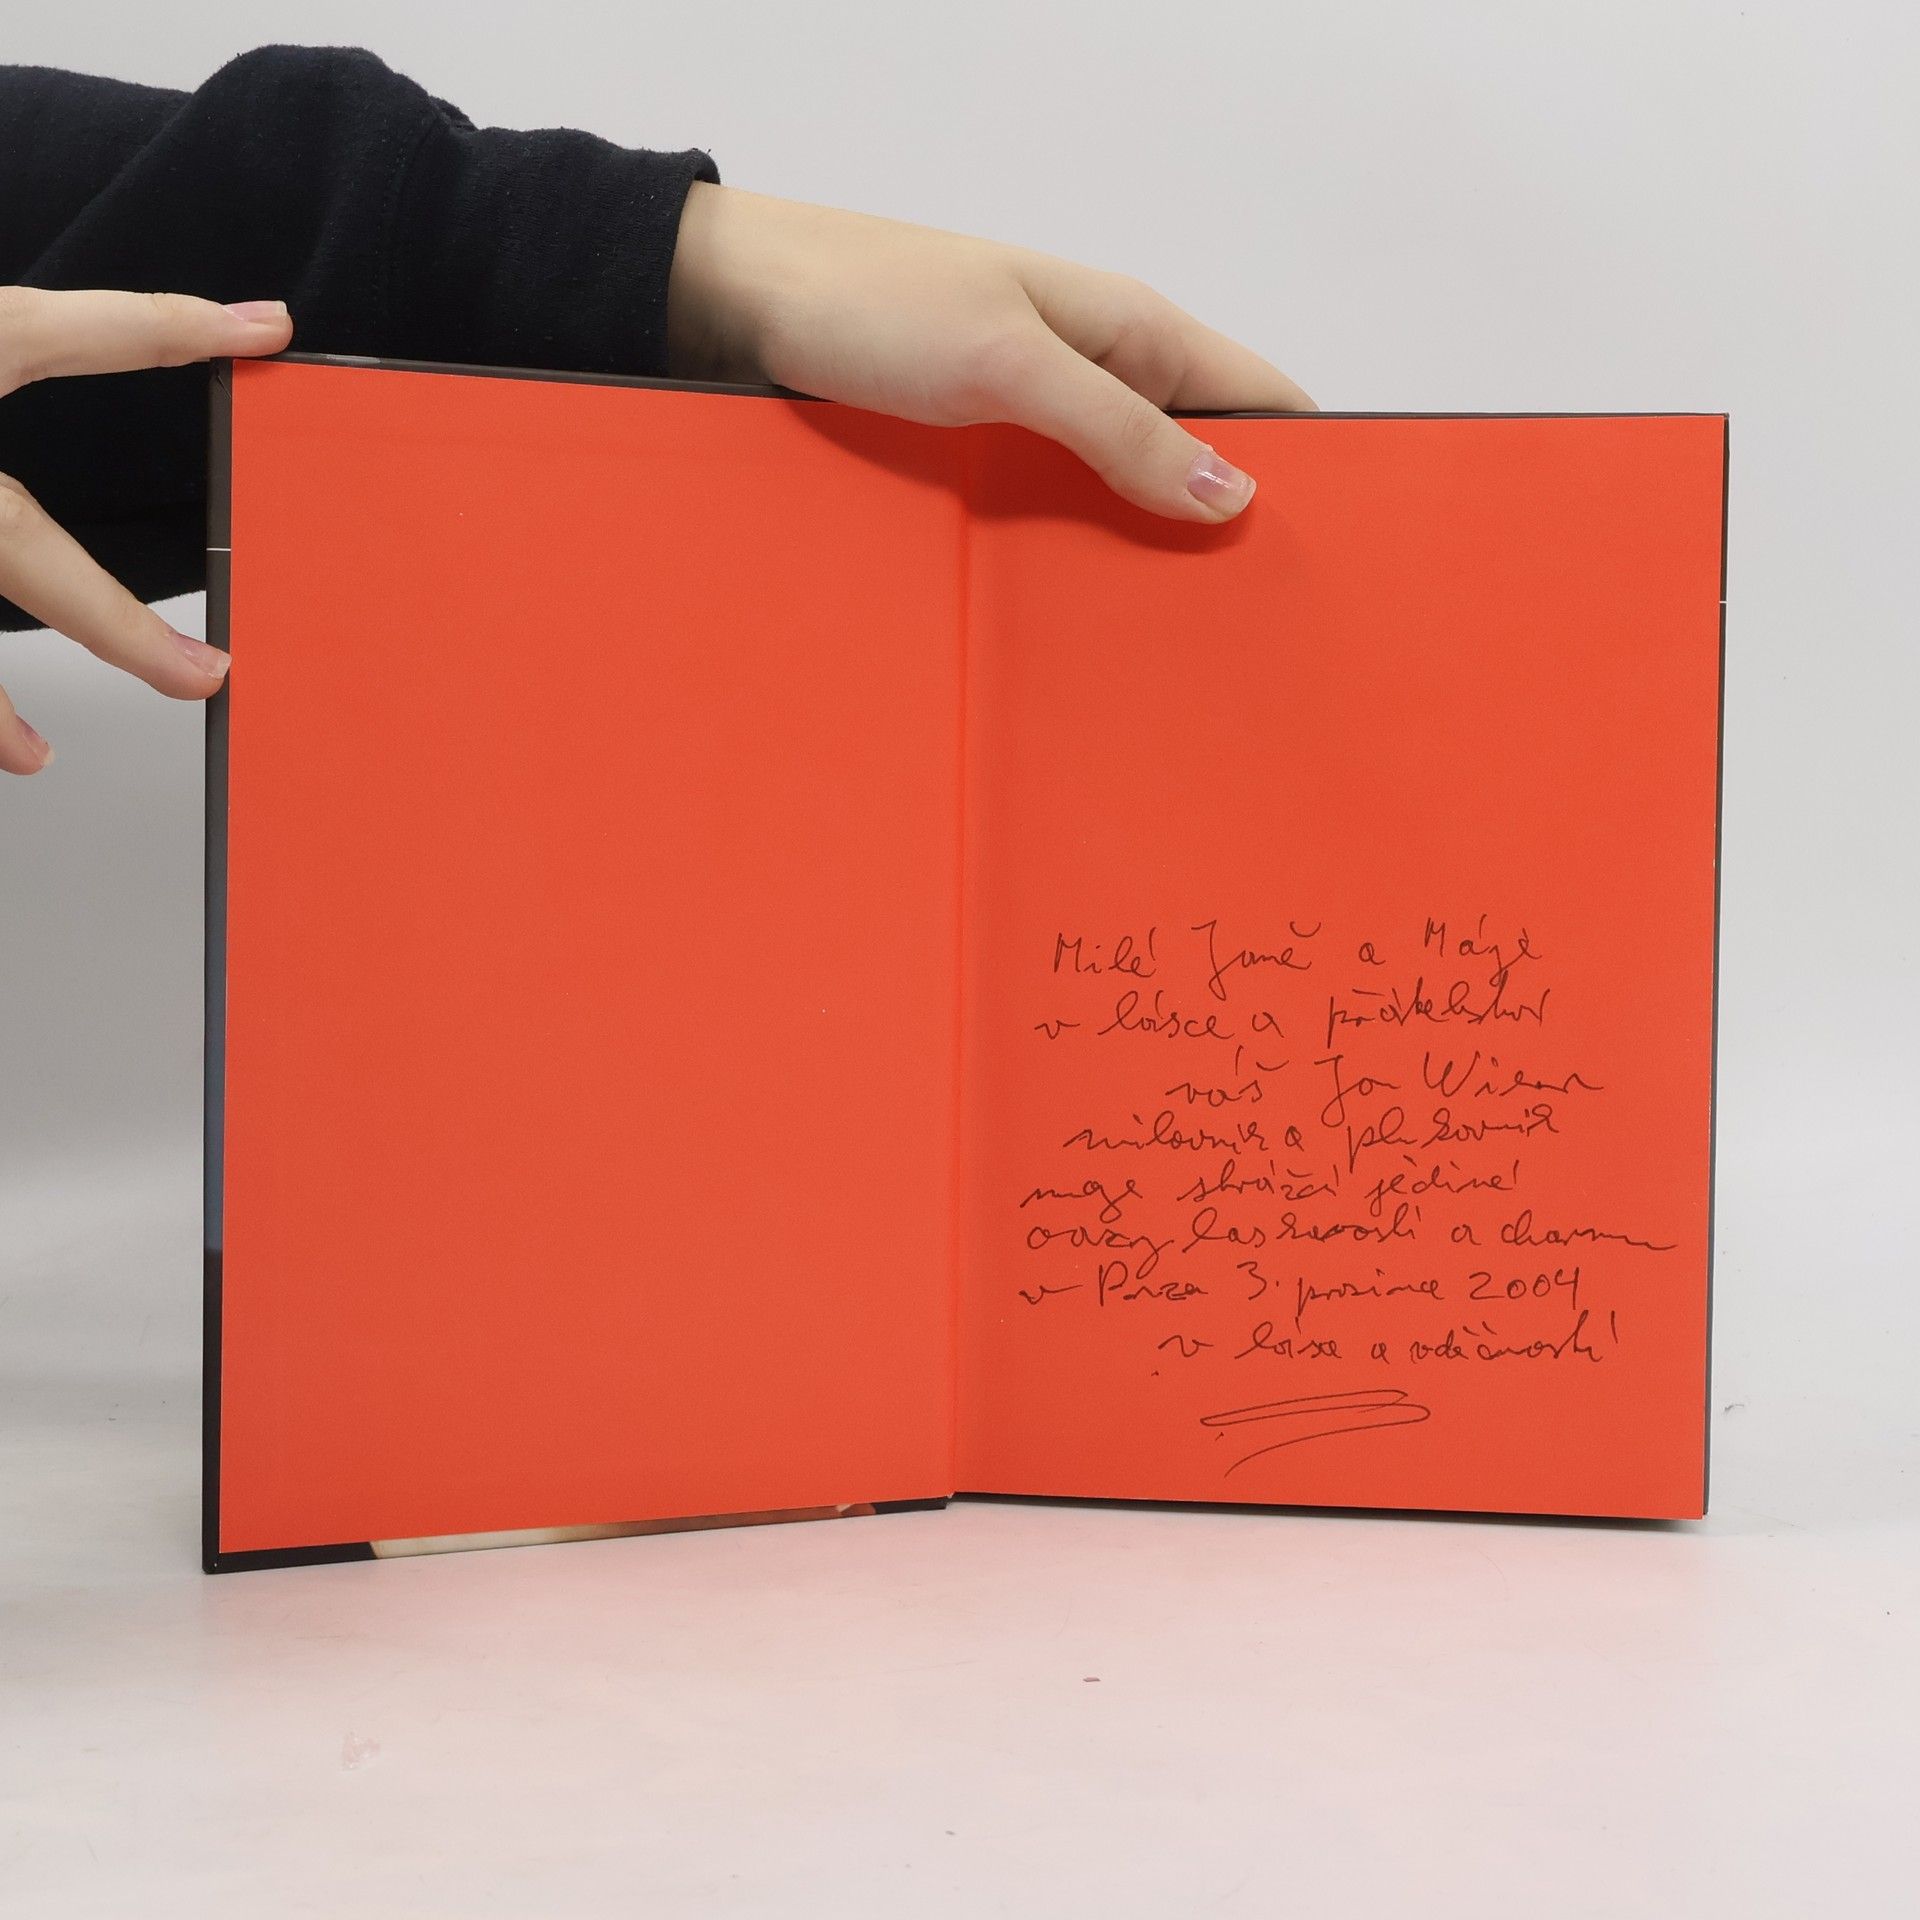 Milé Janě a Máje
v lásce a přátelství
váš Jan Wiener
milovník a plukovník
stráží jediné
oázy laskavosti a charmu
v Praze 3. prosince 2004
v lásce a vděčnosti